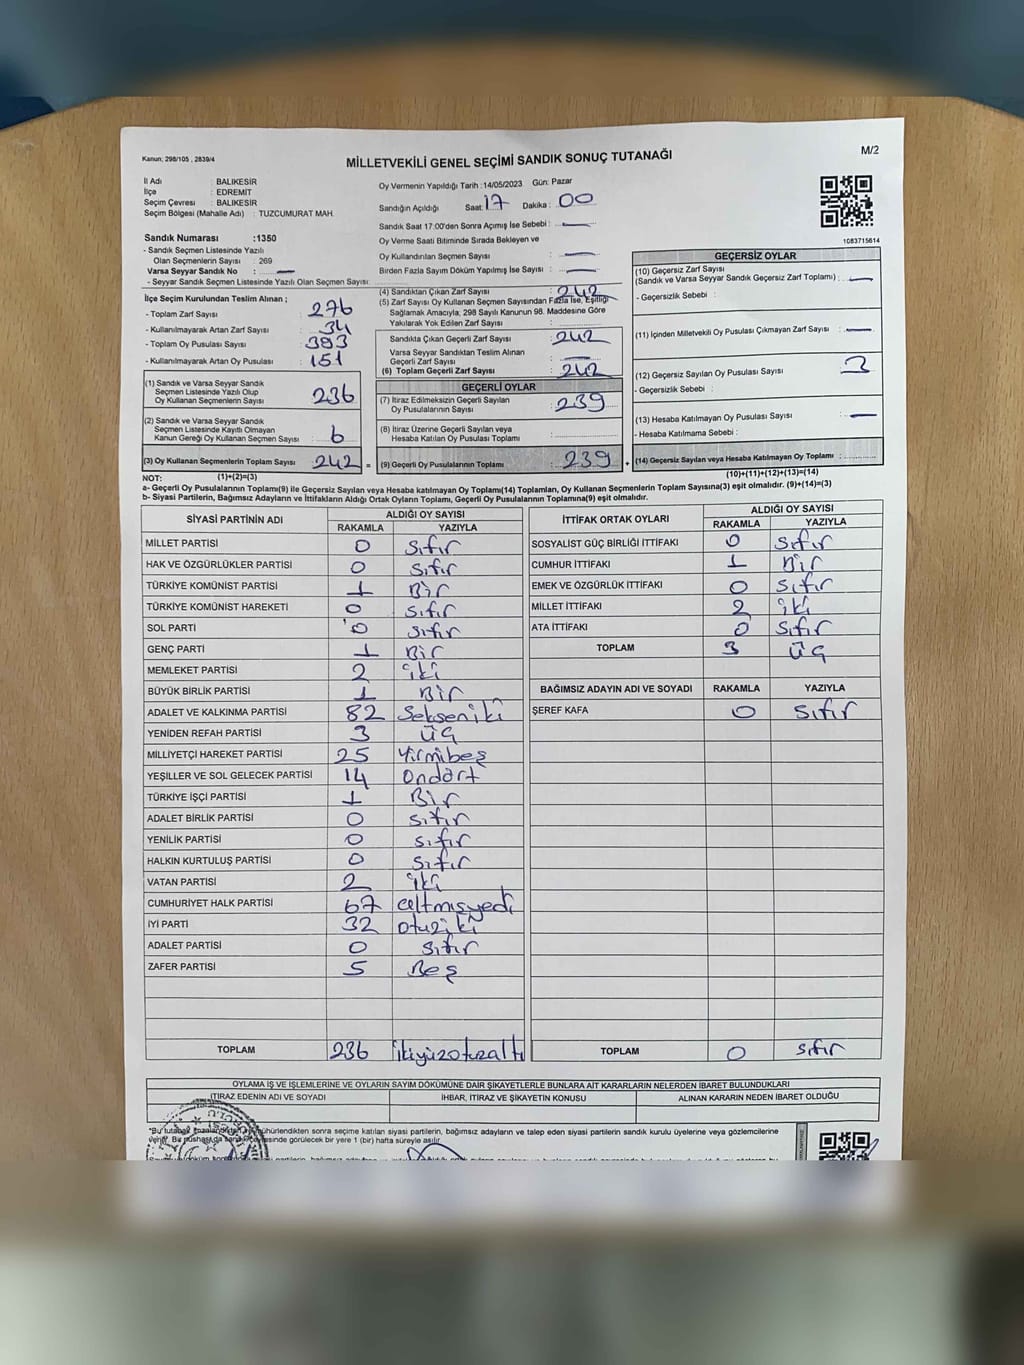 Kanun; 298/105 , 2839/4
MİLLETVEKİLİ GENEL SEÇİMİ SANDIK SONUÇ TUTANAĞI
M/2
İl Adı : BALIKESİR
İlçe : EDREMİT
Seçim Çevresi : BALIKESİR
Seçim Bölgesi (Mahalle Adı) : TUZCUMURAT MAH.
Sandık Numarası :1350
- Sandık Seçmen Listesinde Yazılı
Olan Seçmenlerin Sayısı : 269
Varsa Seyyar Sandık No : —
- Seyyar Sandık Seçmen Listesinde Yazılı Olan Seçmen Sayısı:
İlçe Seçim Kurulundan Teslim Alınan ;
- Toplam Zarf Sayısı : 276
- Kullanılmayarak Artan Zarf Sayısı : 34
- Toplam Oy Pusulası Sayısı : 393
- Kullanılmayarak Artan Oy Pusulası : 151
(1) Sandık ve Varsa Seyyar Sandık
Seçmen Listesinde Yazılı Olup
Oy Kullanan Seçmenlerin Sayısı : 236
(2) Sandık ve Varsa Seyyar Sandık
Seçmen Listesinde Kayıtlı Olmayan
Kanun Gereği Oy Kullanan Seçmen Sayısı : 6
(3) Oy Kullanan Seçmenlerin Toplam Sayısı : 242 =
(1)+(2)=(3)
Oy Vermenin Yapıldığı Tarih :14/05/2023 Gün: Pazar
Sandığın Açıldığı Saat: 17 Dakika : 00
Sandık Saat 17:00'den Sonra Açımış İse Sebebi : —
Oy Verme Saati Bitiminde Sırada Bekleyen ve
Oy Kullandırılan Seçmen Sayısı : —
Birden Fazla Sayım Döküm Yapılmış İse Sayısı : —
(4) Sandıktan Çıkan Zarf Sayısı : 242
(5) Zarf Sayısı Oy Kullanan Seçmen Sayısından Fazla İse, Eşitliği
Sağlamak Amacıyla, 298 Sayılı Kanunun 98. Maddesine Göre
Yakılarak Yok Edilen Zarf Sayısı :
Sandıkta Çıkan Geçerli Zarf Sayısı : 242
Varsa Seyyar Sandıktan Teslim Alınan
Geçerli Zarf Sayısı : —
(6) Toplam Geçerli Zarf Sayısı : 242
GEÇERLİ OYLAR
(7) İtiraz Edilmeksizin Geçerli Sayılan
Oy Pusulalarının Sayısı : 239
(8) İtiraz Üzerine Geçerli Sayılan veya
Hesaba Katılan Oy Pusulası Toplamı :
(9) Geçerli Oy Pusulalarının Toplamı : 239 +
1083715614
GEÇERSİZ OYLAR
(10) Geçersiz Zarf Sayısı
(Sandık ve Varsa Seyyar Sandık Geçersiz Zarf Toplamı) : —
- Geçersizlik Sebebi :
(11) İçinden Milletvekili Oy Pusulası Çıkmayan Zarf Sayısı : —
(12) Geçersiz Sayılan Oy Pusulası Sayısı : 3
- Geçersizlik Sebebi :
(13) Hesaba Katılmayan Oy Pusulası Sayısı : —
- Hesaba Katılmama Sebebi :
(14) Geçersiz Sayılan veya Hesaba Katılmayan Oy Toplamı :
(10)+(11)+(12)+(13)=(14)
NOT:
a- Geçerli Oy Pusulalarının Toplamı(9) ile Geçersiz Sayılan veya Hesaba katılmayan Oy Toplamı(14) Toplamları, Oy Kullanan Seçmenlerin Toplam Sayısına(3) eşit olmalıdır. (9)+(14)=(3)
b- Siyasi Partilerin, Bağımsız Adayların ve İttifakların Aldığı Oyların Toplamı, Geçerli Oy Pusulalarının Toplamına(9) eşit olmalıdır.
SİYASİ PARTİNİN ADI ALDIĞI OY SAYISI
RAKAMLA YAZIYLA
MİLLET PARTİSİ 0 sıfır
HAK VE ÖZGÜRLÜKLER PARTİSİ 0 sıfır
TÜRKİYE KOMÜNİST PARTİSİ 1 Bir
TÜRKİYE KOMÜNİST HAREKETİ 0 sıfır
SOL PARTİ 0 sıfır
GENÇ PARTİ 1 Bir
MEMLEKET PARTİSİ 2 iki
BÜYÜK BİRLİK PARTİSİ 1 Bir
ADALET VE KALKINMA PARTİSİ 82 Sekseniki
YENİDEN REFAH PARTİSİ 3 üç
MİLLİYETÇİ HAREKET PARTİSİ 25 Yirmibeş
YEŞİLLER VE SOL GELECEK PARTİSİ 14 Ondört
TÜRKİYE İŞÇİ PARTİSİ 1 Bir
ADALET BİRLİK PARTİSİ 0 sıfır
YENİLİK PARTİSİ 0 sıfır
HALKIN KURTULUŞ PARTİSİ 0 sıfır
VATAN PARTİSİ 2 iki
CUMHURİYET HALK PARTİSİ 67 altmışyedi
İYİ PARTİ 32 otuziki
ADALET PARTİSİ 0 sıfır
ZAFER PARTİSİ 5 Beş
TOPLAM 236 ikiyüzotuzaltı
İTTİFAK ORTAK OYLARI ALDIĞI OY SAYISI
RAKAMLA YAZIYLA
SOSYALİST GÜÇ BİRLİĞİ İTTİFAKI 0 sıfır
CUMHUR İTTİFAKI 1 Bir
EMEK VE ÖZGÜRLÜK İTTİFAKI 0 sıfır
MİLLET İTTİFAKI 2 iki
ATA İTTİFAKI 0 sıfır
TOPLAM 3 üç
BAĞIMSIZ ADAYIN ADI VE SOYADI RAKAMLA YAZIYLA
ŞEREF KAFA 0 sıfır
TOPLAM 0 sıfır
OYLAMA İŞ VE İŞLEMLERİNE VE OYLARIN SAYIM DÖKÜMÜNE DAİR ŞİKAYETLERLE BUNLARA AİT KARARLARIN NELERDEN İBARET BULUNDUKLARI
İTİRAZ EDENİN ADI VE SOYADI İHBAR, İTİRAZ VE ŞİKAYETİN KONUSU ALINAN KARARIN NEDEN İBARET OLDUĞU
"Bu tutanak sonra seçime katılan siyasi partilerin, bağımsız adayların ve talep eden siyasi partilerin sandık kurulu üyelerine veya gözlemcilerine
verilir. Bir görülecek bir yere 1 (bir) hafta süreyle asılır.